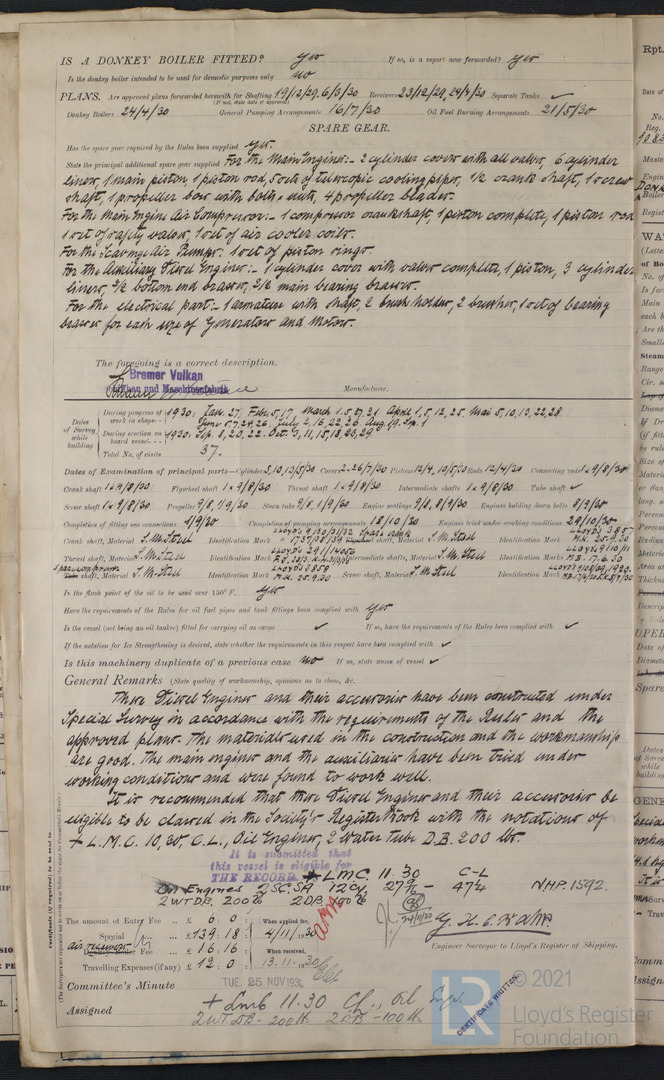 IS A DONKEY BOILER FITTED? Yes If so, is a report now forwarded? Yes
Is the donkey boiler intended to be used for domestic purposes only no
PLANS. Are approved plans forwarded herewith for Shafting 19/12/29. 6/3/30 Receivers 23/12/29, 24/4/30 Separate Tanks ✓
(If not, state date of approval)
Donkey Boilers 24/4/30 General Pumping Arrangements 16/7/30 Oil Fuel Burning Arrangements 21/5/30
SPARE GEAR.
Has the spare gear required by the Rules been supplied yes.
State the principal additional spare gear supplied For the Main Engines:- 2 cylinder covers with all valves, 6 cylinder
liners, 1 main piston, 1 piston rod, 5 sets of telescopic cooling pipes, 1/2 crank shaft, 1 screw
shaft, 1 propeller boss with bolts & nuts, 4 propeller blades.
For the Main Engine Air Compressors:- 1 compressor crankshaft, 1 piston complete, 1 piston rod
1 set of safety valves, 1 set of air cooler coils.
For the Scavenge Air Pumps. 1 set of piston rings.
For the Auxiliary Diesel Engines:- 1 cylinder cover with valves complete, 1 piston, 3 cylinder
liners, 2/2 bottom end brasses, 2/2 main bearing brasses.
For the electrical part:- 1 armature with shaft, 2 brush holder, 2 brushes, 1 set of bearing
brasses for each size of Generators and Motors.
The foregoing is a correct description,
Bremer Vulkan
und Maschinenfabrik Manufacturer.
Dates of Survey while building
During progress of work in shops - - 1930: Jan. 27, Febr. 5, 17, March 1. 5, 27, 21 April 1, 5, 12, 25 Mai 5, 10, 13, 22, 28
June 5, 7, 24, 26, July 2, 16, 22, 26. Aug. 19. Sep. 1
During erection on board vessel - - - 1930: Sep. 8, 20, 22. Oct. 3, 11, 15, 18, 23, 29
Total No. of visits 37.
Dates of Examination of principal parts—Cylinders 5, 10, 13/5/30 Covers 2-26/7/30 Pistons 12/4, 10/5/30 Rods 12/4/30 Connecting rods 1 & 9/8/30
Crank shaft 1 & 9/8/30 Flywheel shaft 1 & 9/8/30 Thrust shaft 1 & 9/8/30 Intermediate shafts 1 & 9/8/30 Tube shaft ✓
Screw shaft 1 & 9/8/30 Propeller 9/8, 1/9/30 Stern tube 9/8, 1/9/30 Engine seatings 9/8, 8/9/30 Engines holding down bolts 8/9/30
Completion of fitting sea connections 1/9/30 Completion of pumping arrangements 18/10/30 Engines tried under working conditions 29/10/30
Crank shaft, Material S.M. Steel Identification Mark Spare crank shaft, Material S.M. Steel Identification Mark M.K. 25.9.30
Thrust shaft, Material S.M. Steel Identification Mark Intermediate shafts, Material S.M. Steel Identification Marks M.B. 17.6.30
shaft, Material S.M. Steel Identification Mark LLOYDS 3858 M.K. 25.9.30 Screw shaft, Material S.M. Steel Identification Mark
Is the flash point of the oil to be used over 150° F. Yes
Have the requirements of the Rules for oil fuel pipes and tank fittings been complied with Yes
Is the vessel (not being an oil tanker) fitted for carrying oil as cargo ✓ If so, have the requirements of the Rules been complied with ✓
If the notation for Ice Strengthening is desired, state whether the requirements in this respect have been complied with ✓
Is this machinery duplicate of a previous case no If so, state name of vessel ✓
General Remarks (State quality of workmanship, opinions as to class, &c.
These Diesel Engines and their accessories have been constructed under
Special Survey in accordance with the requirements of the Rules and the
approved plans. The materials used in the construction and the workmanship
are good. The main engines and the auxiliaries have been tried under
working conditions and were found to work well.
It is recommended that these Diesel Engines and their accessories be
eligible to be classed in the Society's Register Book with the notations of
+ L.M.C. 10,30, C.L., Oil Engines, 2 Water Tube D.B. 200 lbs.
It is submitted that
this vessel is eligible for
THE RECORD + LMC. 11.30 C-L
Oil Engines 2SC.SA 12Cy. 27 9/16 - 47 1/4 NHP. 1592.
2 WTDB. 200 lb 2DB. 100 lb
The amount of Entry Fee .. £ 6 : 0 : When applied for,
Special ... £ 139.18 : 4/11/1930
air receivers Fee ... £ 16 : 16 When received,
Travelling Expenses (if any) £ 12 : 0 : 13.11.1930
Engineer Surveyor to Lloyd's Register of Shipping.
Committee's Minute TUE. 25 NOV 1930
Assigned + Lmb 11.30 CL, Oil Engs
2 WT DB - 200 lb 2 DB - 100 lb
CERTIFICATE WRITTEN
LR © 2021
Lloyd's Register
Foundation